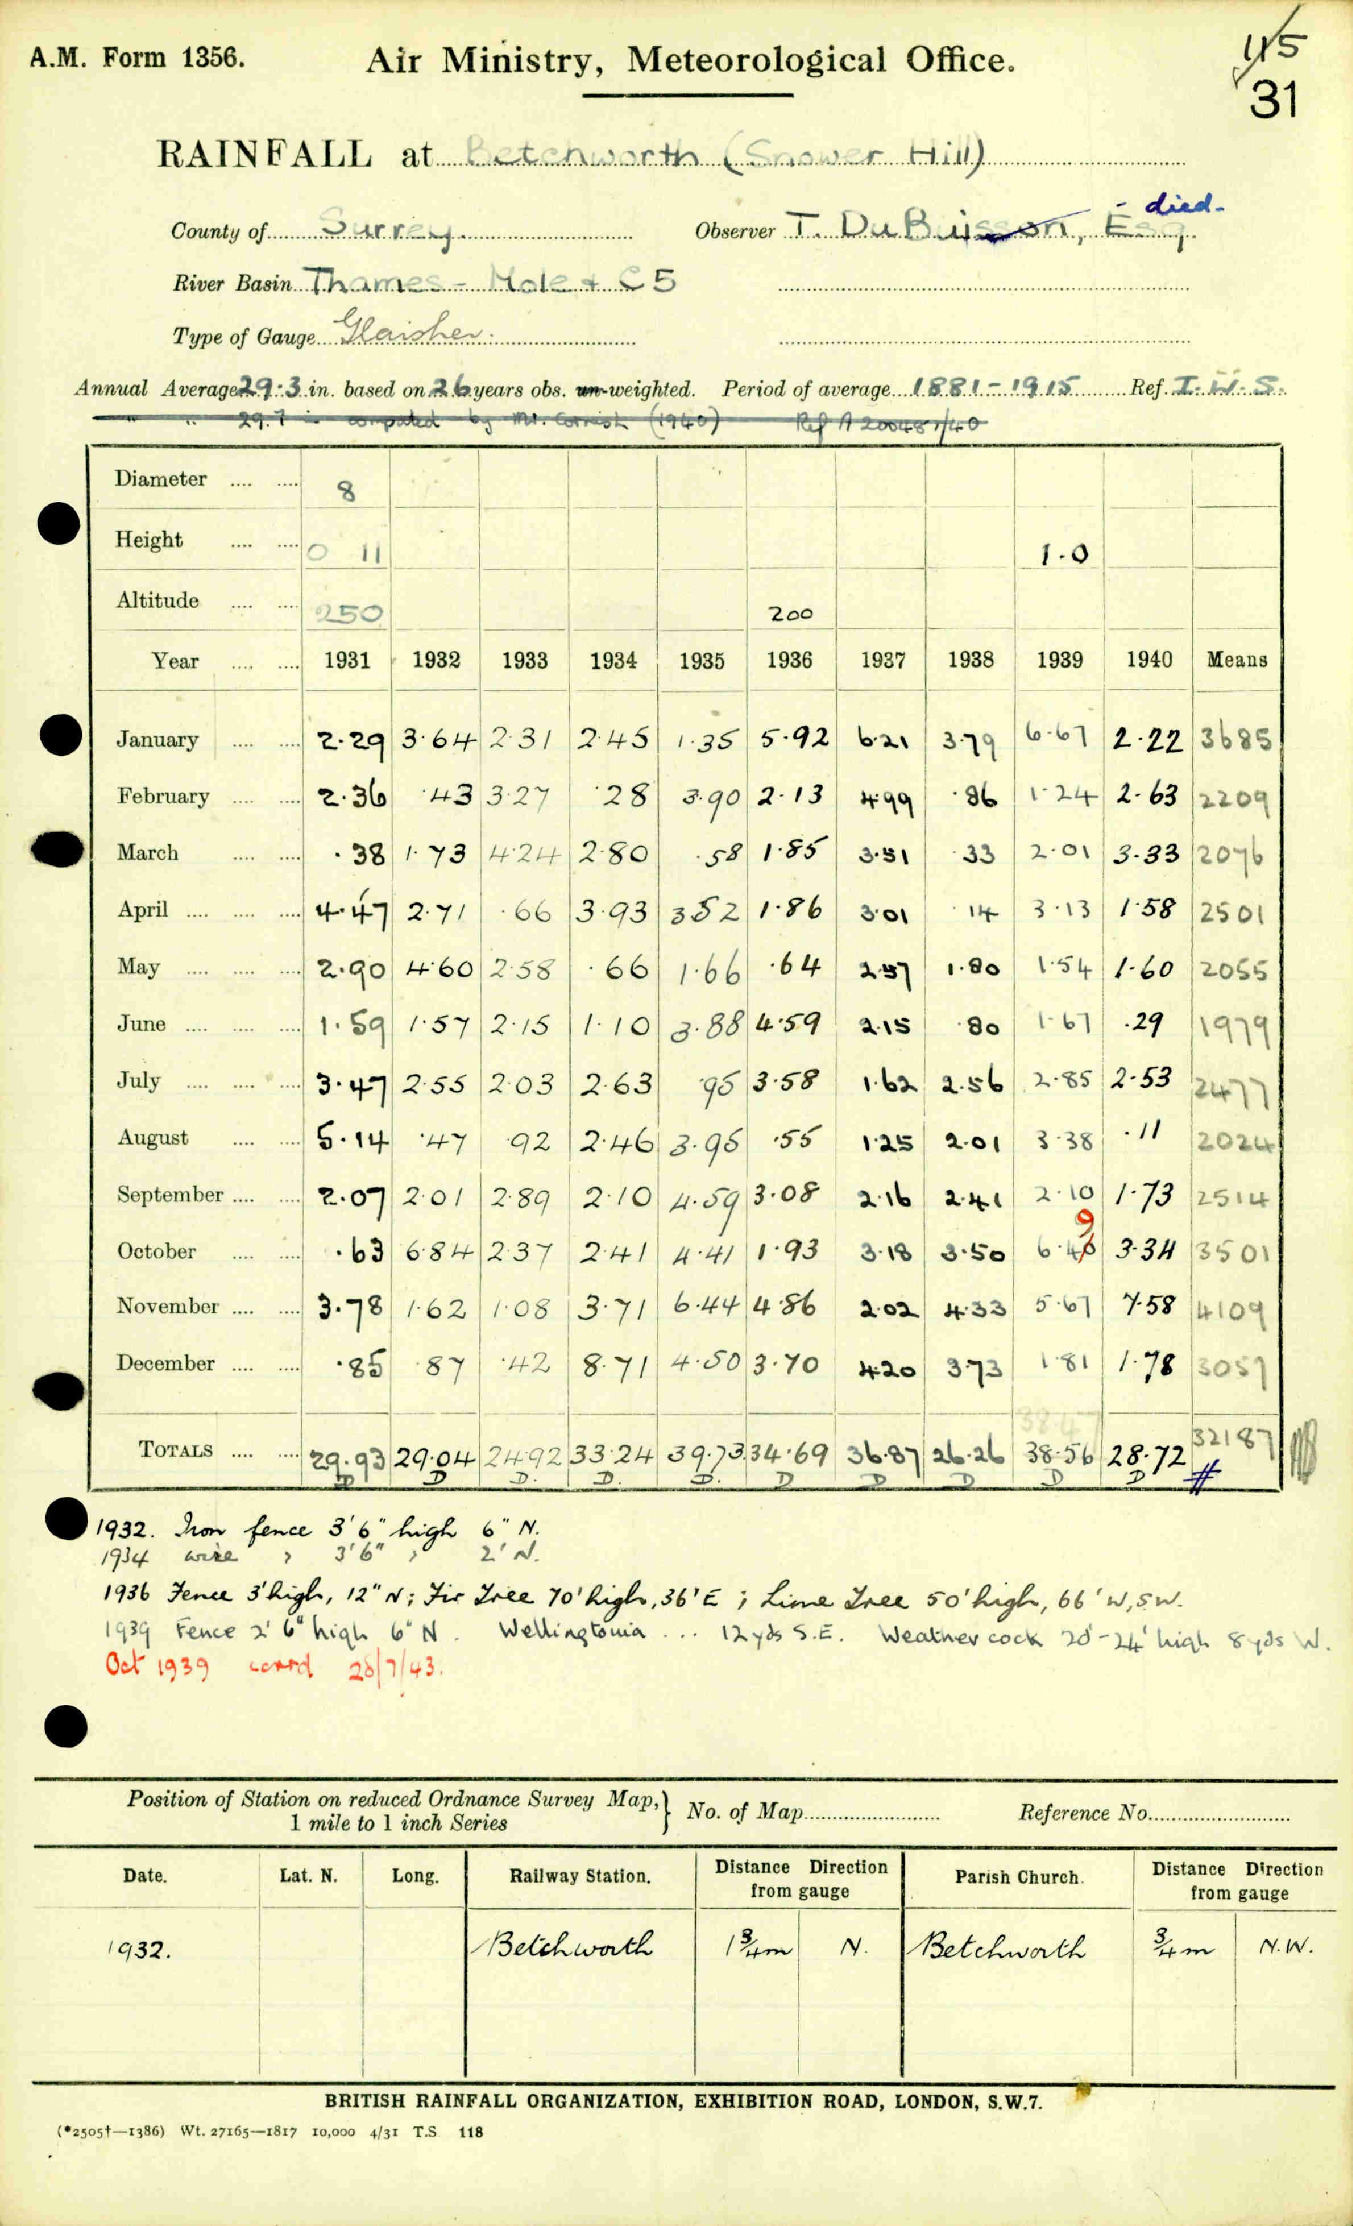 A.M. Form 1356.
Air Ministry, Meteorological Office.
45
31
RAINFALL at Betchworth (Snower Hill)
died.
County of Surrey. Observer T. DuBuisson, Esq
River Basin Thames - Mole + C5
Type of Gauge Glaisher.
Annual Average 29.3 in. based on 26 years obs. un-weighted. Period of average 1881-1915 Ref. I.W.S.
" " 29.7 in computed by Mr. Cornish (1940) Ref A200481/40
Diameter 8
Height 0 11 1.0
Altitude 250 200
Year 1931 1932 1933 1934 1935 1936 1937 1938 1939 1940 Means
January 2.29 3.64 2.31 2.45 1.35 5.92 6.21 3.79 6.67 2.22 3685
February 2.36 .43 3.27 .28 3.90 2.13 4.99 .86 1.24 2.63 2209
March .38 1.73 4.24 2.80 .58 1.85 3.51 .33 2.01 3.33 2076
April 4.47 2.71 .66 3.93 3.52 1.86 3.01 .14 3.13 1.58 2501
May 2.90 4.60 2.58 .66 1.66 .64 2.57 1.80 1.54 1.60 2055
June 1.59 1.57 2.15 1.10 3.88 4.59 2.15 .80 1.67 .29 1979
July 3.47 2.55 2.03 2.63 .95 3.58 1.62 2.56 2.85 2.53 2477
August 5.14 .47 .92 2.46 3.95 .55 1.25 2.01 3.38 .11 2024
September 2.07 2.01 2.89 2.10 4.59 3.08 2.16 2.41 2.10 1.73 2514
9
October .63 6.84 2.37 2.41 4.41 1.93 3.18 3.50 6.40 3.34 3501
November 3.78 1.62 1.08 3.71 6.44 4.86 2.02 4.33 5.67 7.58 4109
December .85 .87 .42 8.71 4.50 3.70 4.20 3.73 1.81 1.78 3057
38.47
TOTALS 29.93 29.04 24.92 33.24 39.73 34.69 36.87 26.26 38.56 28.72 32187
D D D. D. D. D D D D D #
1932. Iron fence 3'6" high 6" N.
1934 wire " 3'6" " 2' N.
1936 Fence 3' high, 12" N; Fir Tree 70' high, 36' E; Lime Tree 50' high, 66' W,SW.
1939 Fence 2' 6" high 6" N. Wellingtonia ... 12yds S.E. Weathercock 20'-24' high 8yds W.
Oct 1939 corrd 28/7/43.
Position of Station on reduced Ordnance Survey Map, } No. of Map Reference No.
1 mile to 1 inch Series
Date. Lat. N. Long. Railway Station. Distance Direction from gauge Parish Church. Distance Direction from gauge
1932. Betchworth 1 3/4 m N. Betchworth 3/4 m N.W.
BRITISH RAINFALL ORGANIZATION, EXHIBITION ROAD, LONDON, S.W.7.
(*2505†—1386) Wt. 27165—1817 10,000 4/31 T.S 118